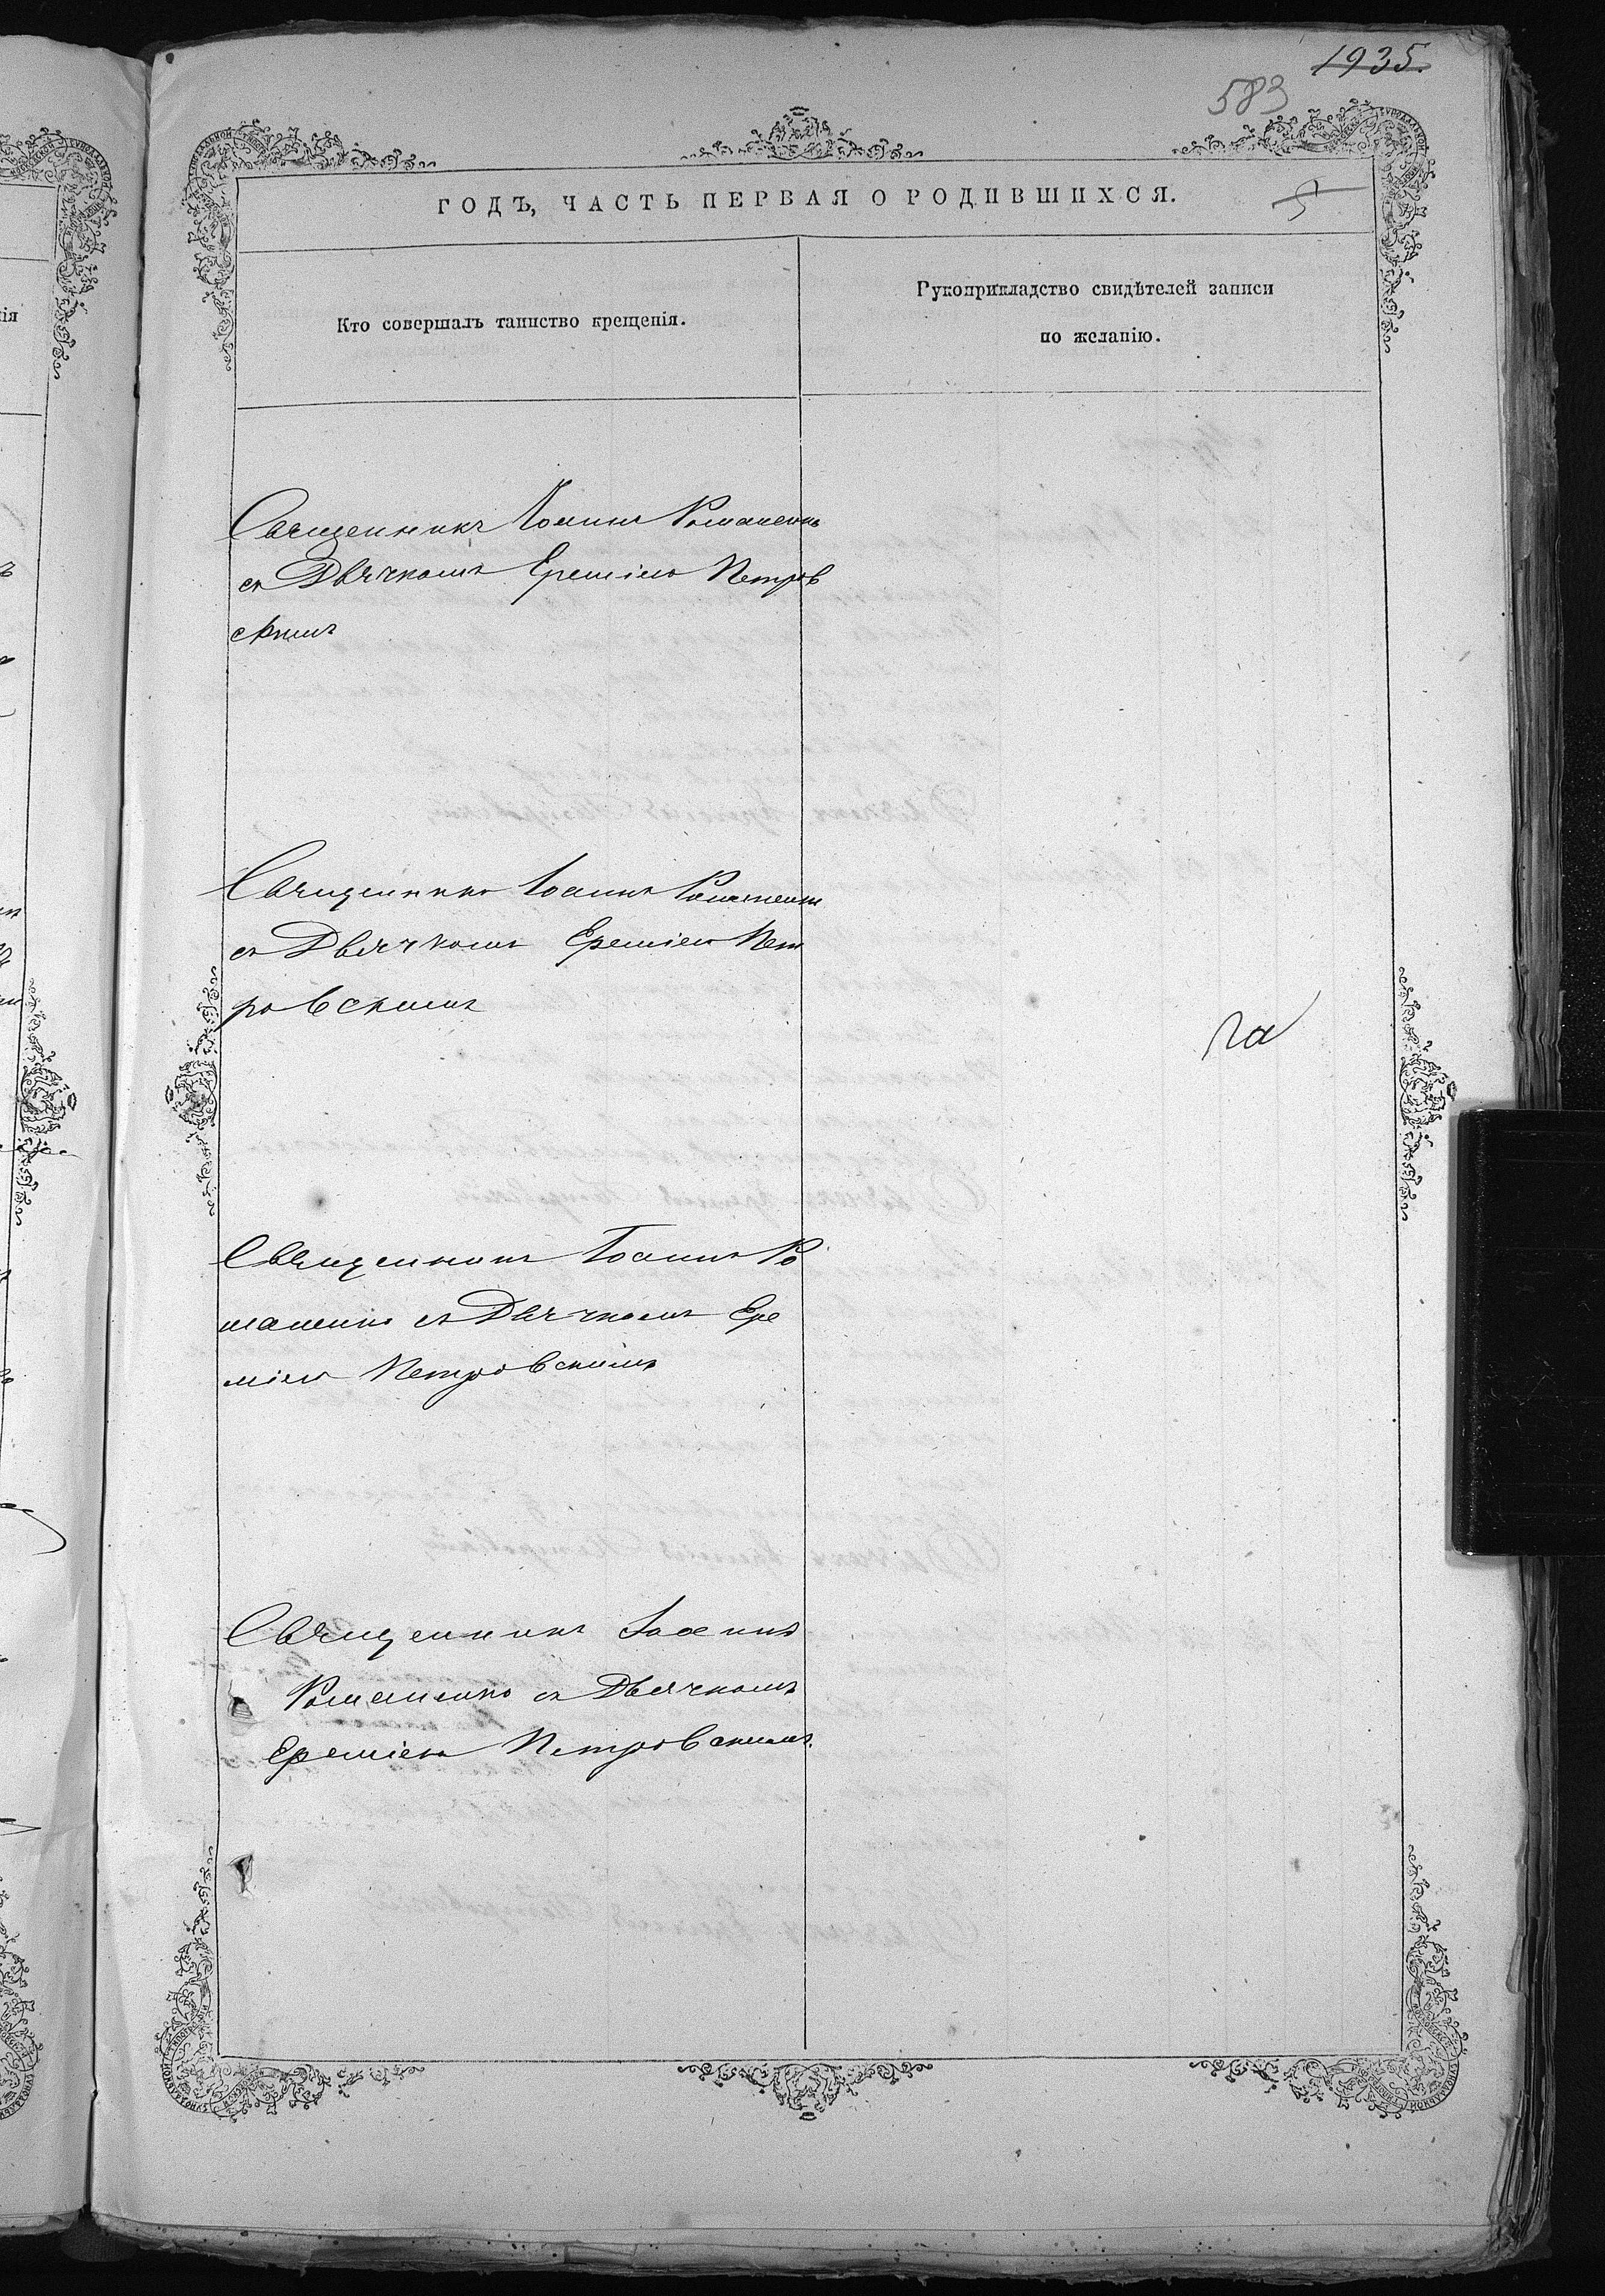 1935.
583
ГОДЪ, ЧАСТЬ ПЕРВАЯ О РОДИВШИХСЯ.
5
Кто совершалъ таинство крещенія.
Рукоприкладство свидѣтелей записи
по желанію.
Священникъ Іоаннъ Романенко
съ Дьячкомъ Ереміею Петров
скимъ
Священникъ Іоаннъ Романенко
съ Дьячкомъ Ереміею Пет
ровскимъ
Священникъ Іоаннъ Ро
маненко съ Дьячкомъ Ере
міею Петровскимъ
Священникъ Іоаннъ
Романенко съ Дьячкомъ
Ереміею Петровскимъ.